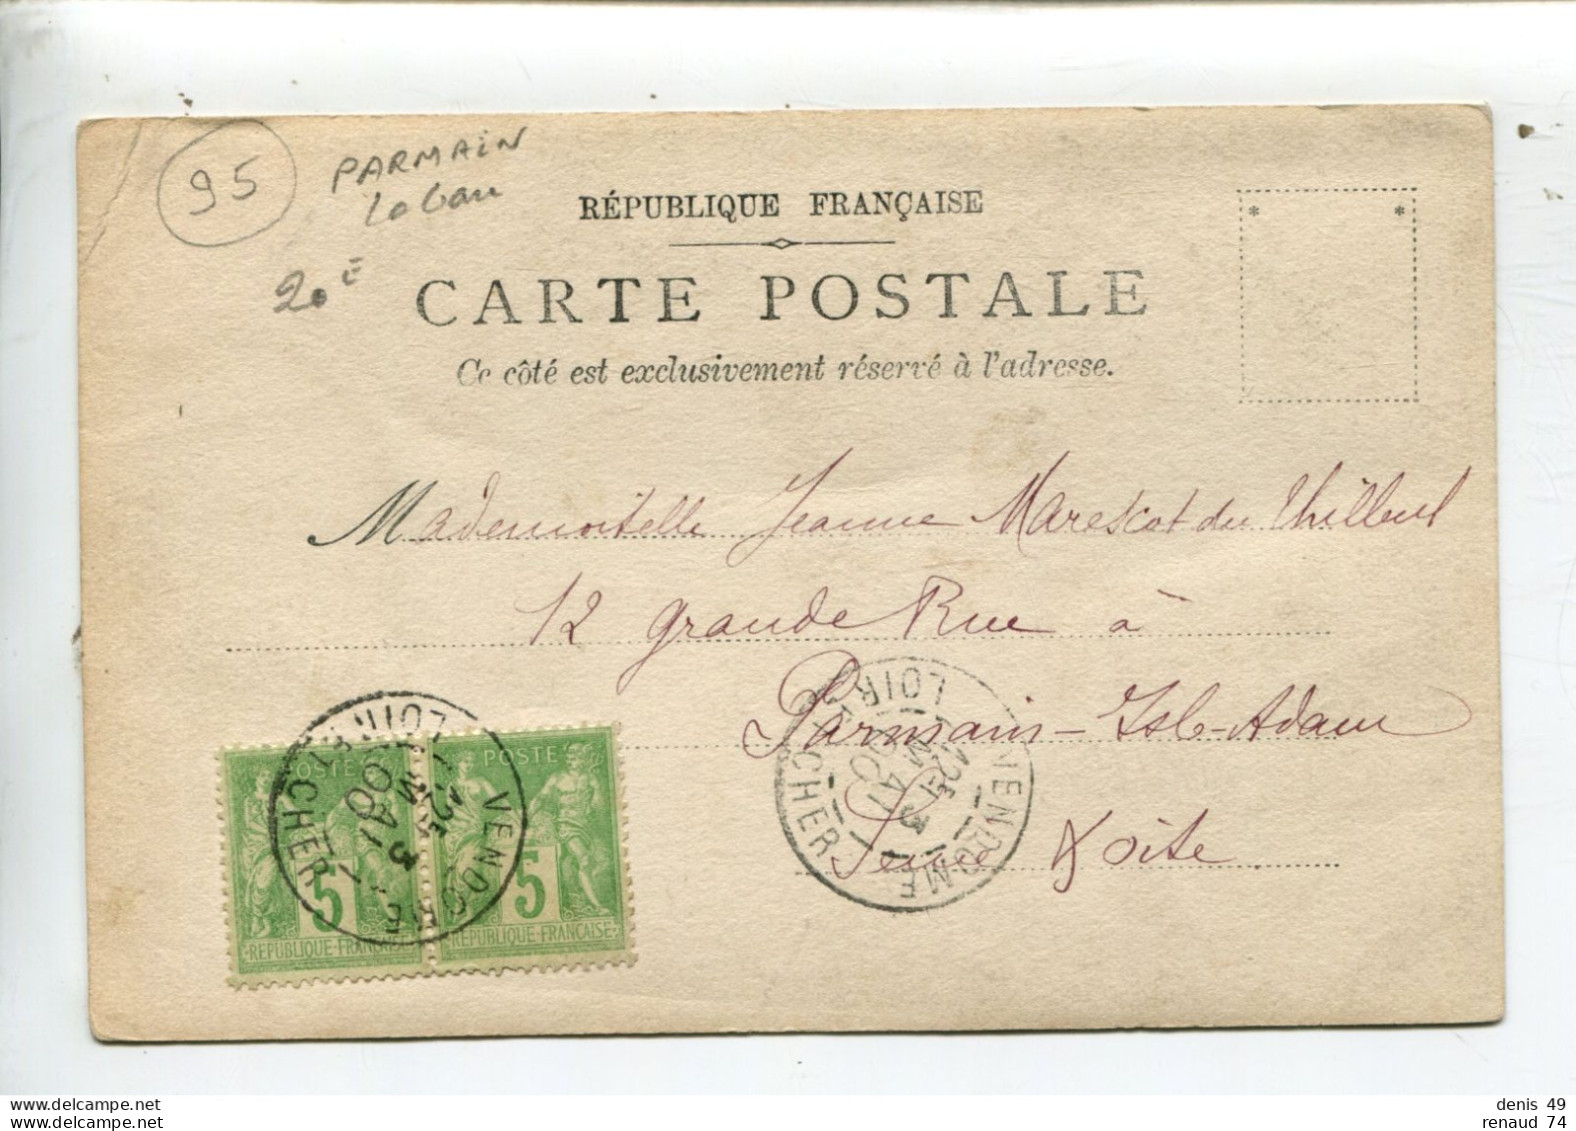 95
PARMAIN
La Gare
20 E
RÉPUBLIQUE FRANÇAISE
CARTE POSTALE
Ce côté est exclusivement réservé à l'adresse.
Mademoiselle Jeanne Marescot du Thilleul
12 grande Rue à
Parmain - Isle-Adam
Seine & Oise
VENDOME
LOIR-ET-CHER
3 MAI 00
VENDOME
LOIR-ET-CHER
3 MAI 00
POSTE
5
RÉPUBLIQUE FRANÇAISE
POSTE
5
RÉPUBLIQUE FRANÇAISE
www.delcampe.net
www.delcampe.net
denis 49
renaud 74